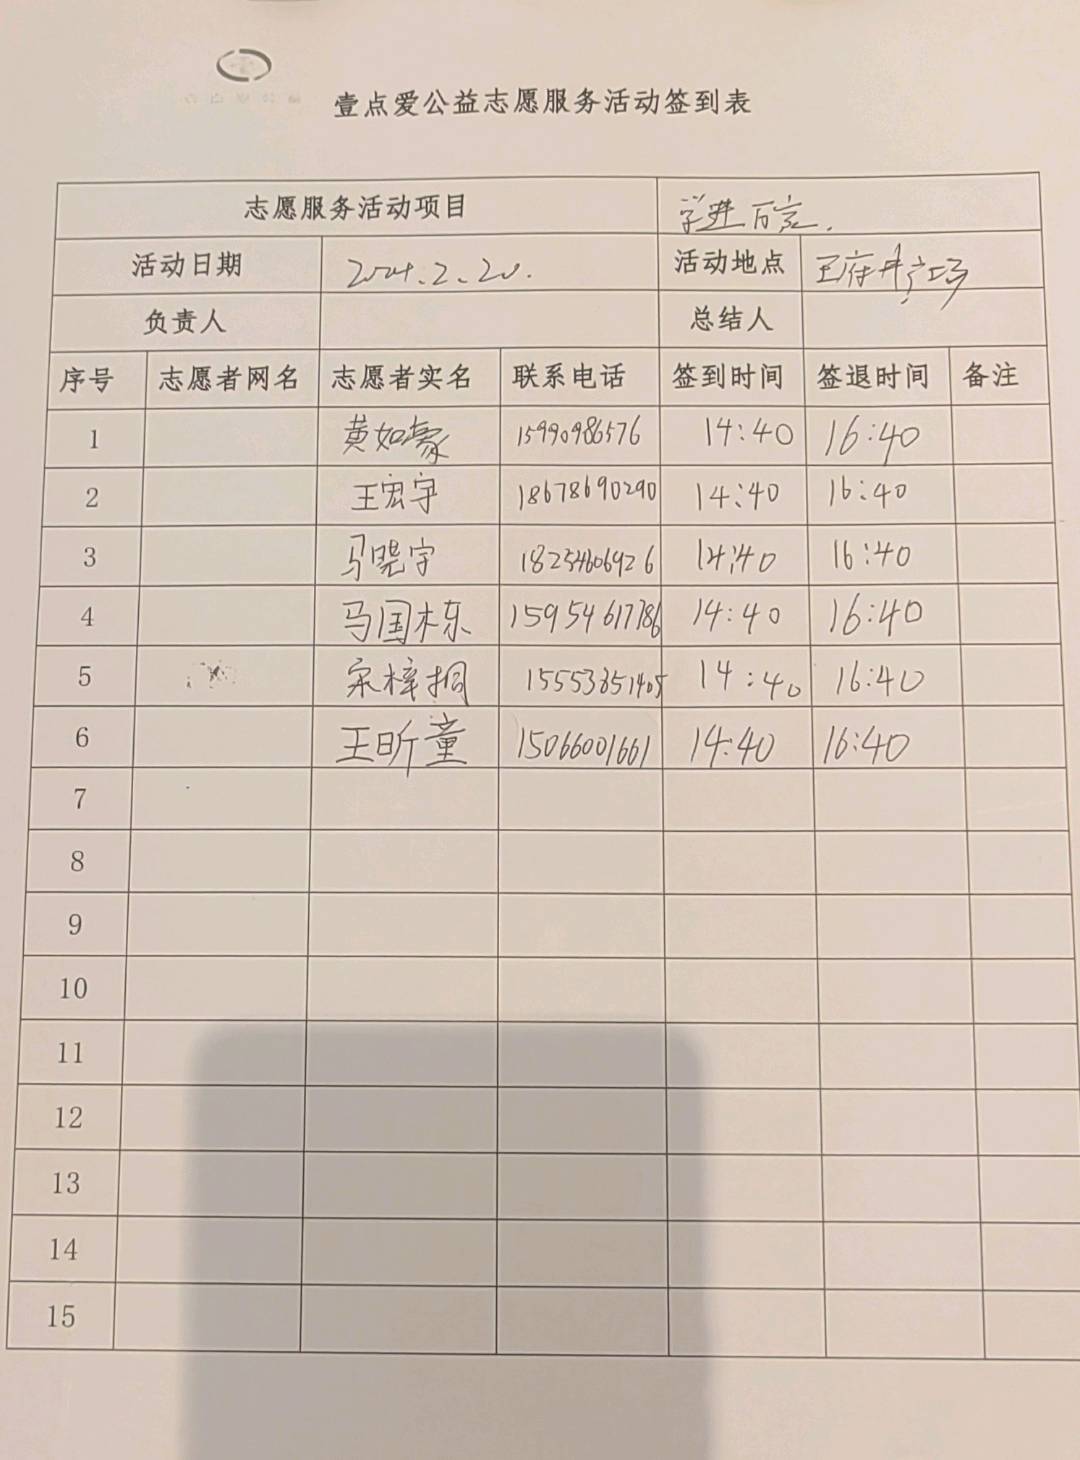 壹点爱公益志愿服务活动签到表
志愿服务活动项目 学进百家.
活动日期 2024.2.20. 活动地点 王府井广场
负责人 总结人
序号 志愿者网名 志愿者实名 联系电话 签到时间 签退时间 备注
1 黄如豪 15990986576 14:40 16:40
2 王宏宇 18678690290 14:40 16:40
3 马晓宇 18254606926 14:40 16:40
4 马国栋 15954617786 14:40 16:40
5 宋梓桐 15553851405 14:40 16:40
6 王昕童 15066001661 14:40 16:40
7
8
9
10
11
12
13
14
15